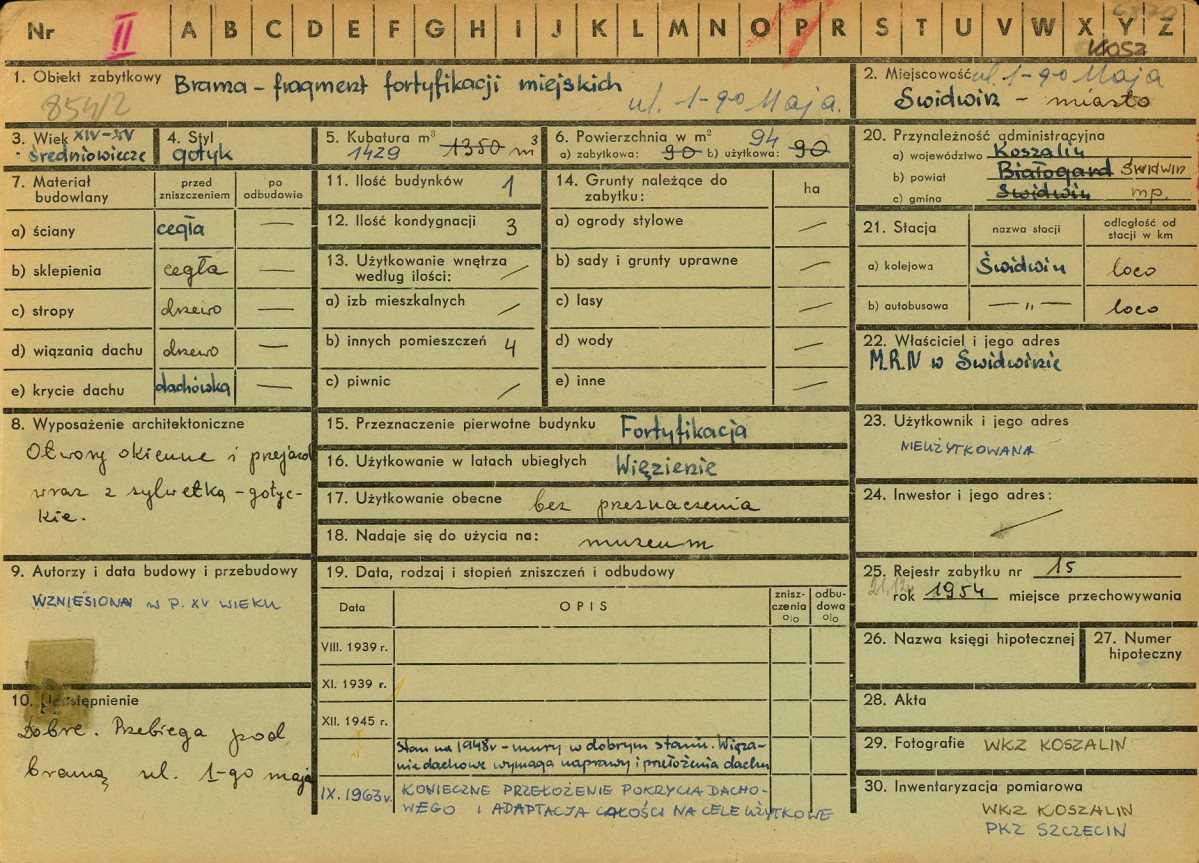 Nr II A B C D E F G H I J K L M N O P R S T U V W X Y Z
KOSZ
1. Obiekt zabytkowy Brama – fragment fortyfikacji miejskich
854/2 ul. 1-go Maja.
2. Miejscowość ul. 1-go Maja
Świdwin – miasto
3. Wiek XIV–XV
średniowiecze
4. Styl
gotyk
5. Kubatura m³
1429 1380 m³
6. Powierzchnia w m² 94
a) zabytkowa: 90 b) użytkowa: 90
20. Przynależność administracyjna
a) województwo Koszalin
b) powiat Białogard Świdwin
c) gmina Świdwin mp.
7. Materiał budowlany
przed zniszczeniem
po odbudowie
a) ściany cegła —
b) sklepienia cegła —
c) stropy drzewo —
d) wiązania dachu drzewo —
e) krycie dachu dachówka —
11. Ilość budynków 1
12. Ilość kondygnacji 3
13. Użytkowanie wnętrza
według ilości: /
a) izb mieszkalnych /
b) innych pomieszczeń 4
c) piwnic /
14. Grunty należące do
zabytku: ha
a) ogrody stylowe —
b) sady i grunty uprawne —
c) lasy —
d) wody —
e) inne —
21. Stacja
nazwa stacji
odległość od
stacji w km
a) kolejowa Świdwin loco
b) autobusowa —„— loco
22. Właściciel i jego adres
M.R.N w Świdwinie
8. Wyposażenie architektoniczne
Otwory okienne i przejazd
wraz z sylwetką – gotyc-
kie.
15. Przeznaczenie pierwotne budynku Fortyfikacja
16. Użytkowanie w latach ubiegłych Więzienie
17. Użytkowanie obecne bez przeznaczenia
18. Nadaje się do użycia na: museum
23. Użytkownik i jego adres
NIEUŻYTKOWANA
24. Inwestor i jego adres:
9. Autorzy i data budowy i przebudowy
WZNIESIONA W P. XV WIEKU
19. Data, rodzaj i stopień zniszczeń i odbudowy
Data OPIS
znisz-
czenia
%
odbu-
dowa
%
VIII. 1939 r.
XI. 1939 r.
XII. 1945 r.
Stan na 1948r – mury w dobrym stanie. Wiąza-
nie dachowe wymaga naprawy i przełożenia dachu
IX. 1963 r. KONIECZNE PRZEŁOŻENIE POKRYCIA DACHO-
WEGO I ADAPTACJA CAŁOŚCI NA CELE UŻYTKOWE
25. Rejestr zabytku nr 15
rok 1954 miejsce przechowywania
26. Nazwa księgi hipotecznej
27. Numer
hipoteczny
10. Udostępnienie
Dobre. Przebiega pod
bramą ul. 1-go maja
28. Akta
29. Fotografie WKZ KOSZALIN
30. Inwentaryzacja pomiarowa
WKZ KOSZALIN
PKZ SZCZECIN